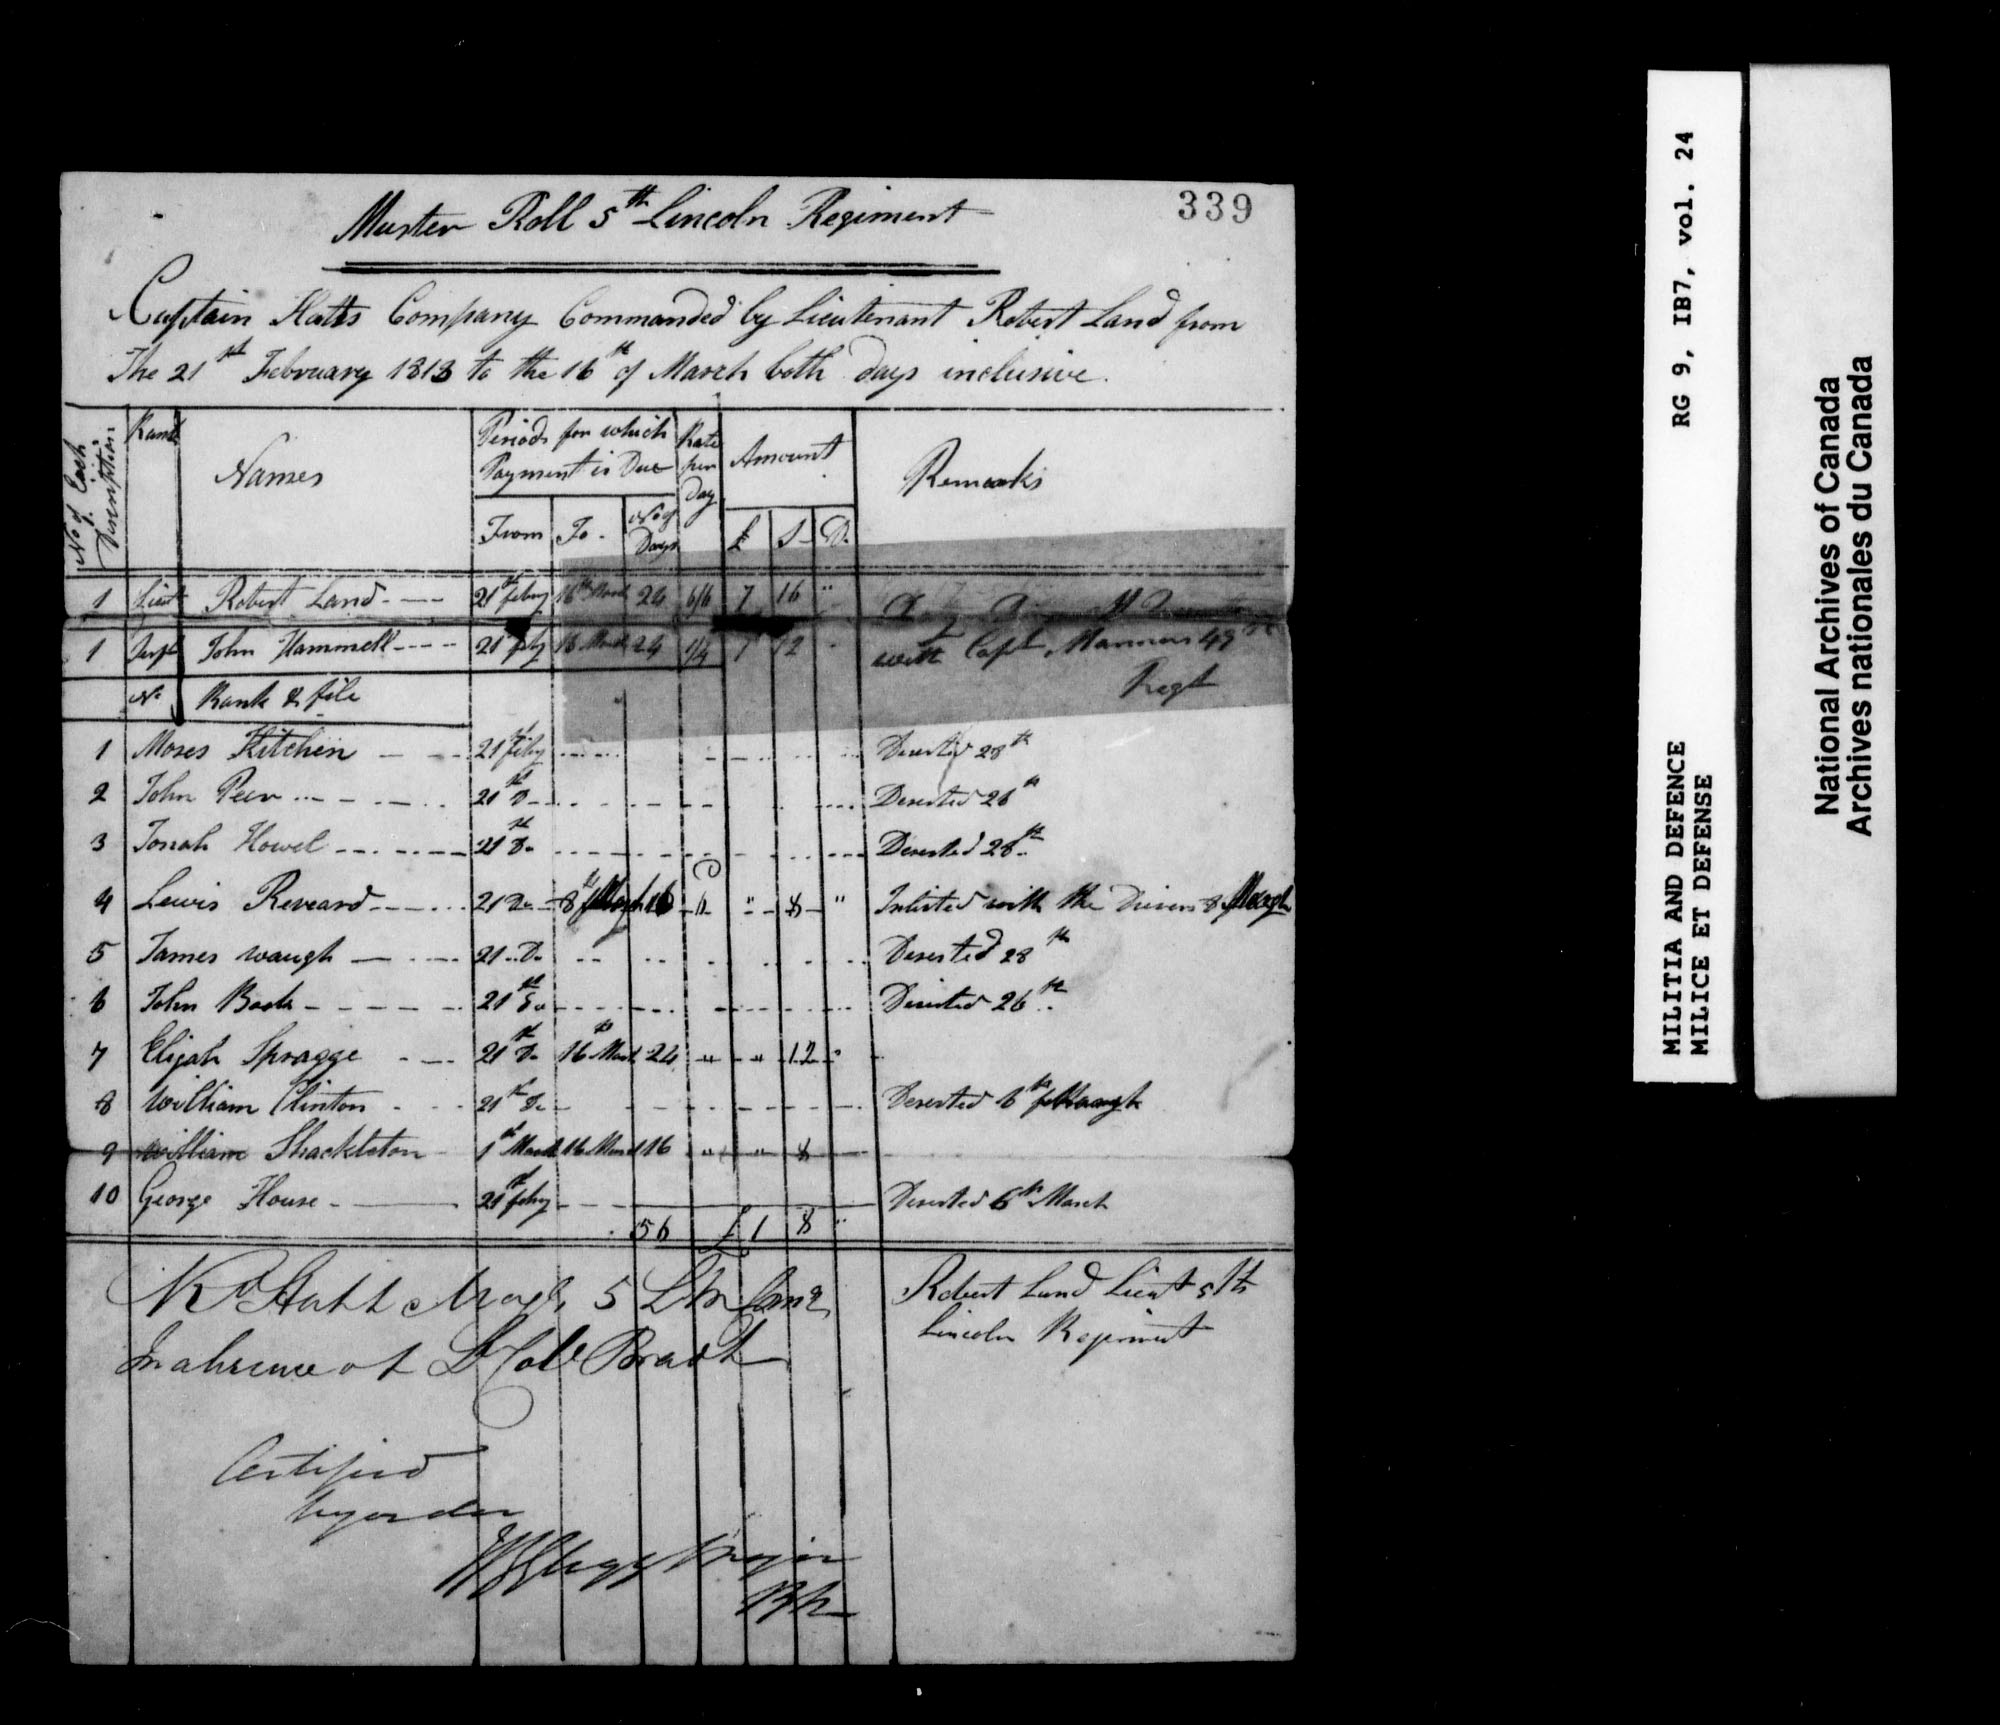 339
Muster Roll 5th Lincoln Regiment
Captain Hatts Company Commanded by Lieutenant Robert Land from
The 21st February 1813 to the 16th of March both days inclusive.
No of Each Description
Rank
Names
Periods for which Payment is Due
From
To
No of Days
Rate per Day
Amount
£ S D
Remarks
1 Lieut Robert Land 21st feby 16th March 24 6/6 7 16 "
1 Serjt John Hammell 21st feby 16 March 24 1/4 1 12 with Capt Manners 49th
Regt
No Rank & file
1 Moses Kitchen 21st feby Deserted 28th
2 John Peer 21st Do Deserted 26th
3 Jonah Howel 21st Do Deserted 28th
4 Lewis Reveard 21 Do 8th March 16 6 " 8 " Inlisted with the Drivers 8 March
5 James waugh 21 Do Deserted 28th
6 John 21st Do Deserted 26th
7 Elijah Spragge 21st Do 16th March 24 " " 12 "
8 William Clinton 21st Do Deserted 6th March
9 William Shackleton 1st March 16 March 16 " " 8
10 George House 21st feby Deserted 6th March
56 £ 1 8 "
Rd Hatt Majr 5 Lin
In absence of Lt Col Bradt
Robert Land Lieut 5th
Lincoln Regiment
Certified
by order
Major
RG 9, IB7, vol. 24
MILITIA AND DEFENCE
MILICE ET DEFENSE
National Archives of Canada
Archives nationales du Canada